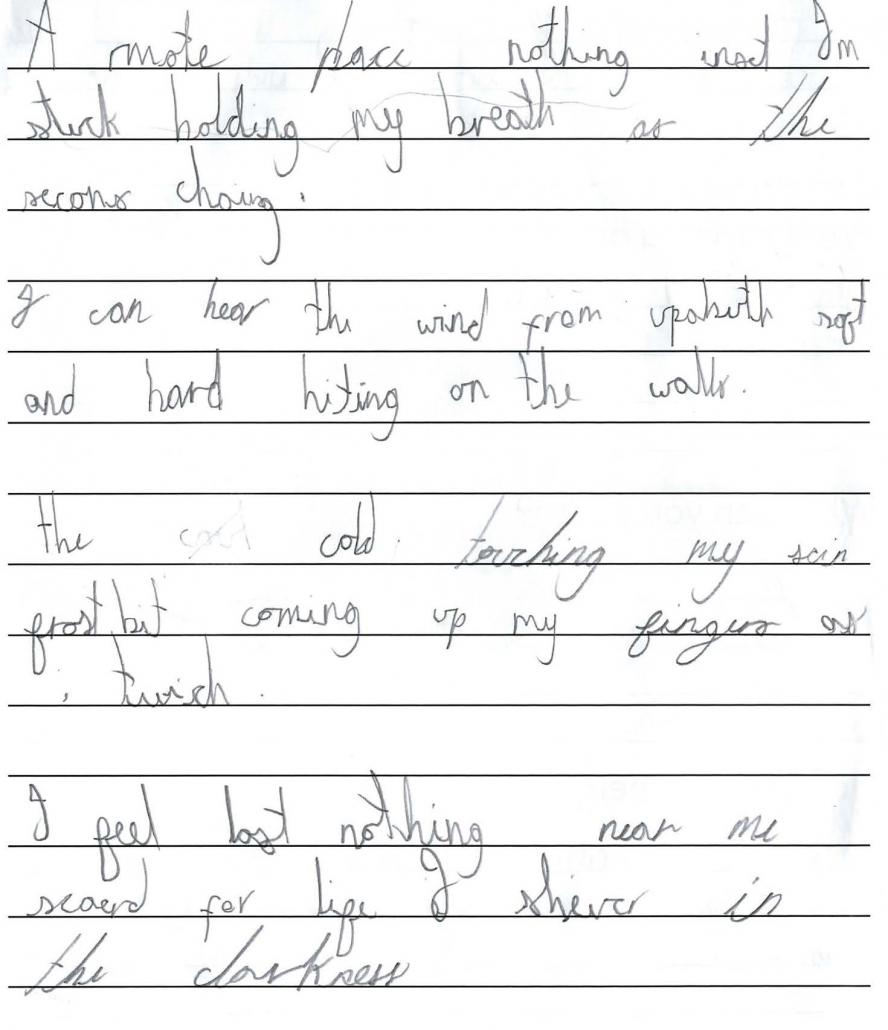 A rmote place nothing insed Im
stuck holding my breath as the
secons chang.
I can hear the wind from upabuth soft
and hard hiting on the walls.
the cold touching my scin
frost bit coming up my fingers as
i twich.
I feel lost nothing near me
scaerd for life I shiver in
the darkness